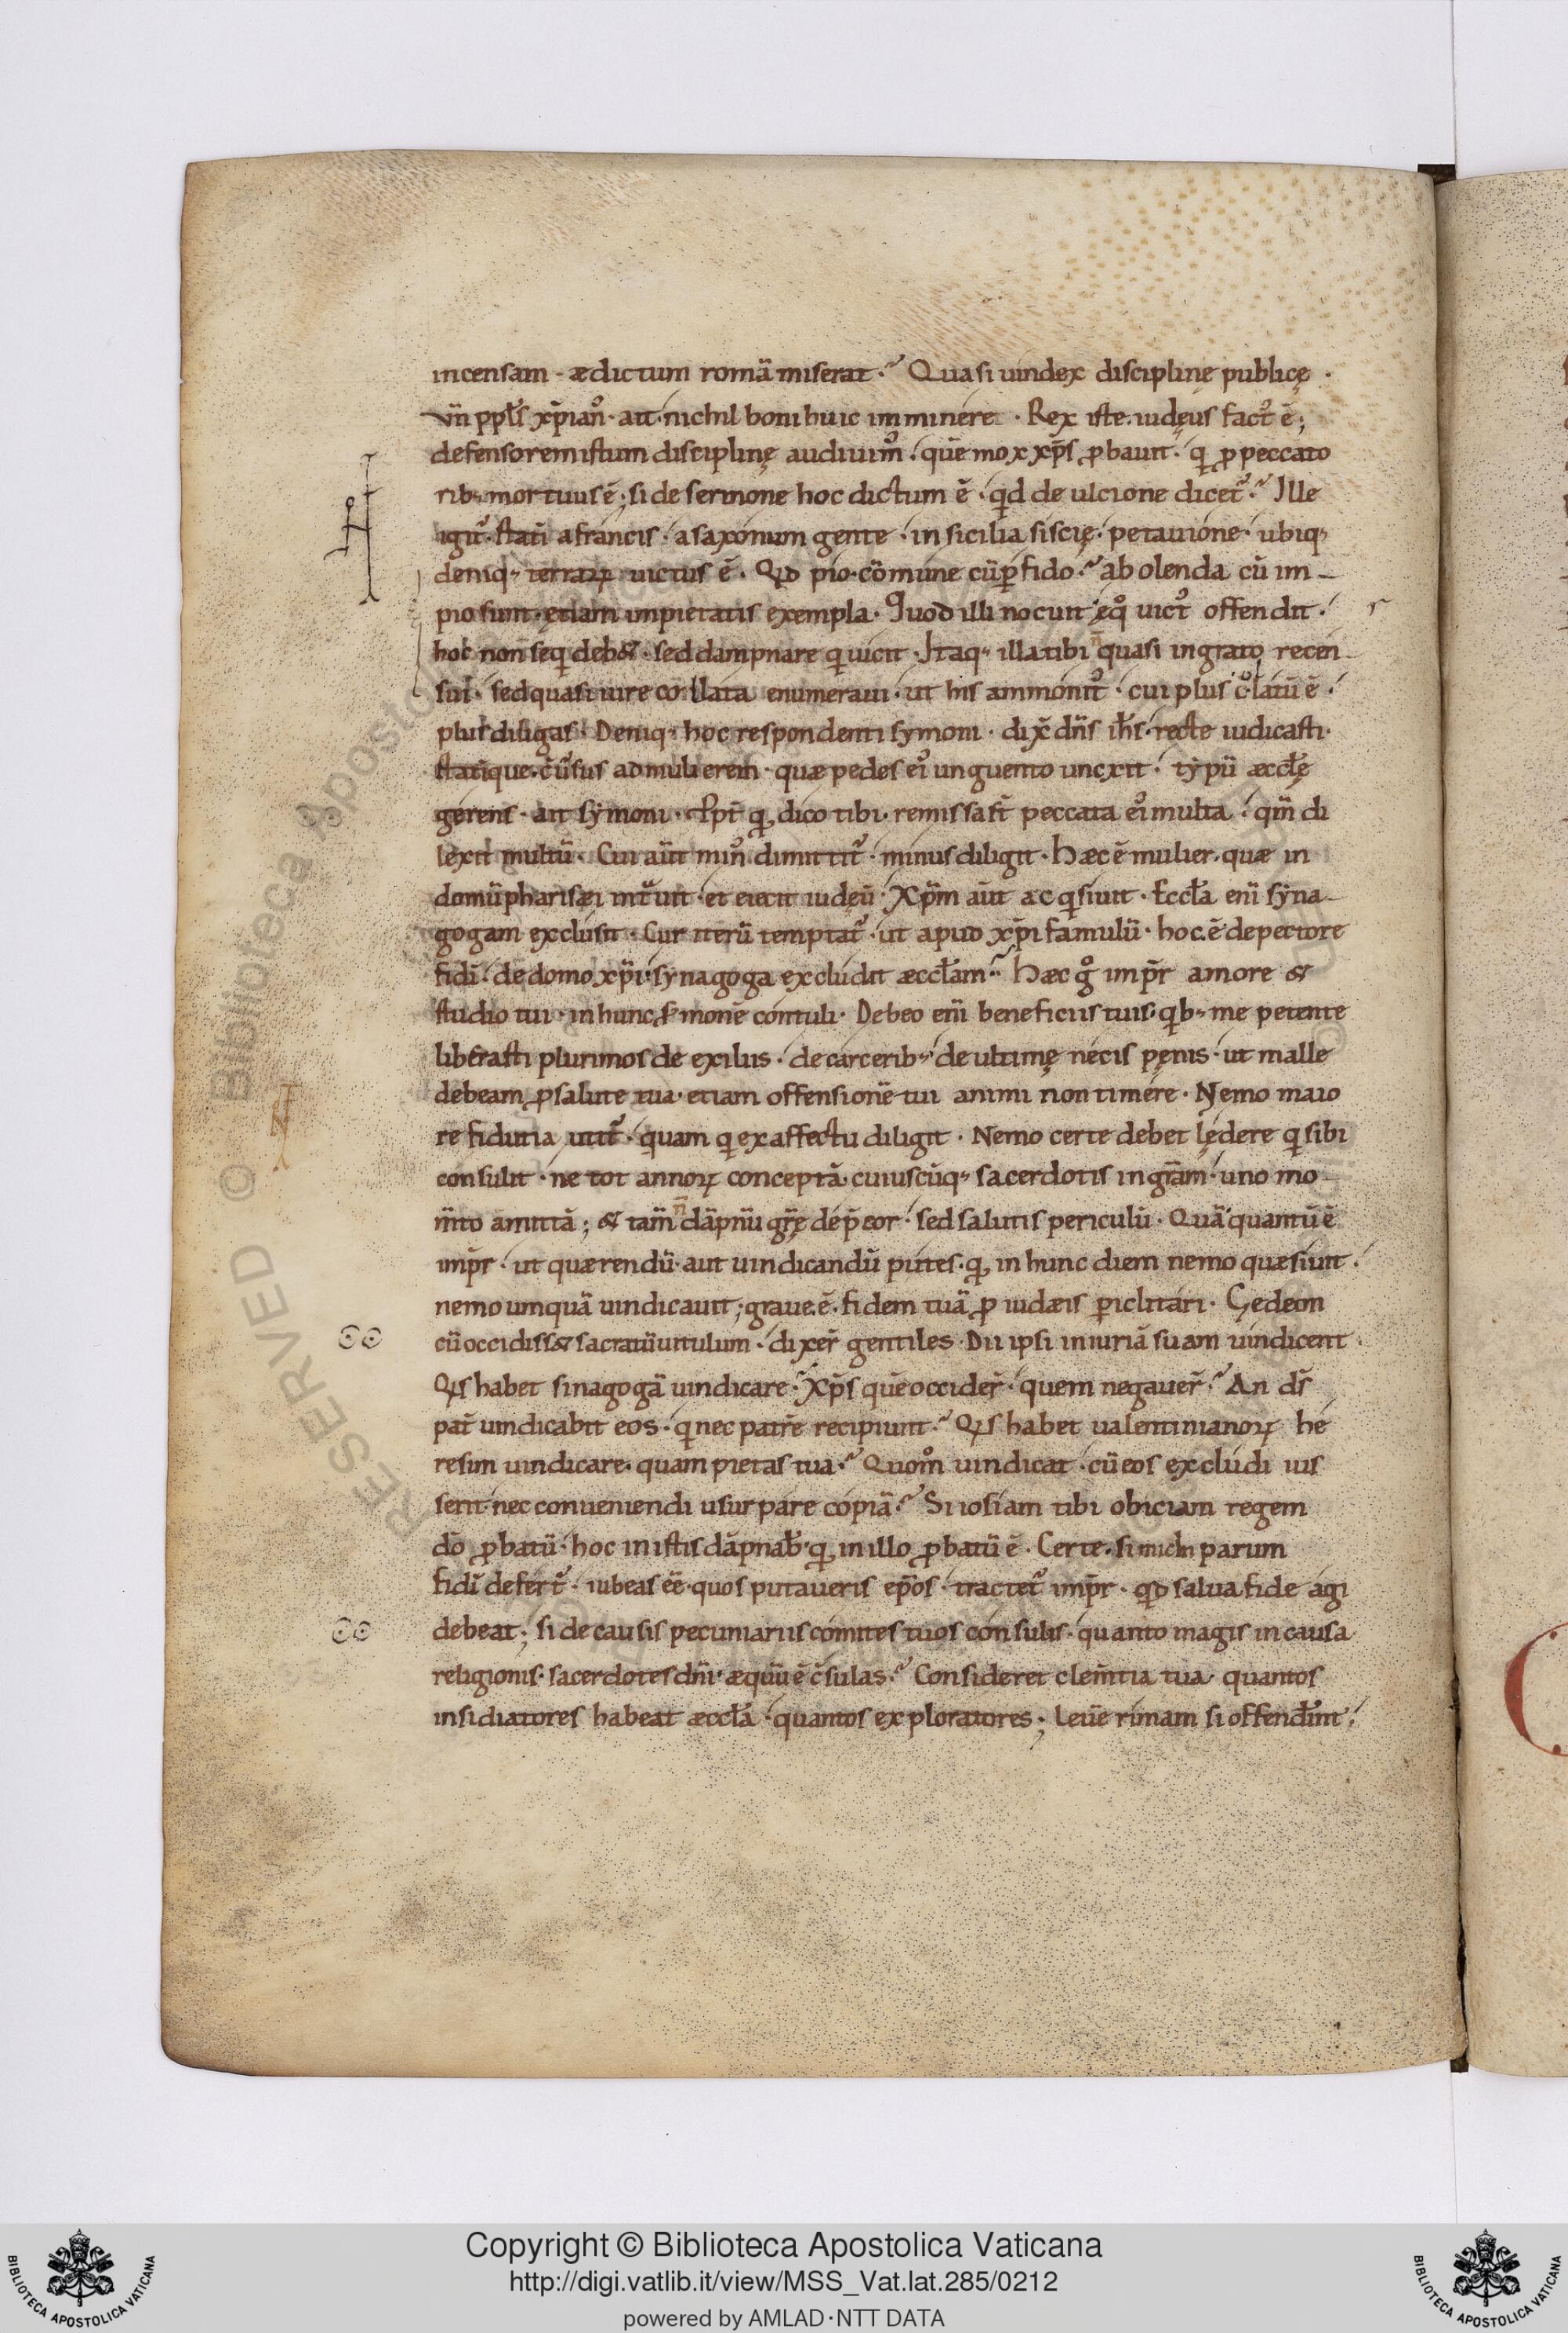 incensam · ædictum romā miserat · Quasi uindex disciplinę publicę ·
Vn̄ ppl̄s xp̄ian⁹ · ait · nichil boni huic imminere · Rex iste iudęus fact⁹ ē ;
defensorem istum disciplinę audiuim⁹ · quē mox xp̄s ꝓbauit · qi ꝓ peccato
rib; mortuus ē ; si de sermone hoc dictum ē · qd de ulcione dicet᷑ · Ille
igit᷑ · stati᷑ a francis · a saxonum gente · in sicilia siscię · petauione · ubiq;
deniq; terraꝝ uictus ē · Qd pio · cōmune cū ꝑfido · abolenda cū im-
pio sunt · ętiam impietatis exempla · Quod illi nocuit · ęq° uict⁹ offendit ·
hoc non seqi deb& · sed dampnare qi uicit · Itaq; illa tibi n̄ quasi ingrato recen-
sui · sed quasi iure collata enumeraui · ut his ammonit⁹ · cui plus c°latū ē ·
plus diligas · Deniq; hoc respondenti symoni · dix̄ dn̄s ih̄s · recte iudicasti ·
statique · c̄u᷑sus ad mulierem · quæ pedes ei⁹ unguento unxit · typū æccl̄ę
gerens · ait symoni · Ppt̄ qd dico tibi · remissa st̄ peccata ei⁹ multa · qm̄ di
lexit multū · Cui aūt min⁹ dimittit᷑ · minus diligit · Hæc ē mulier · quæ in
domū pharisæi int᷑uit · et eiecit iudęū · Xp̄m aūt acqisiuit · Eccl̄a eni᷑ syna-
gogam exclusit · Cur iterū temptat᷑ · ut apud xp̄i famulū · hoc · ē de pectore
fidi᷑ · de domo xp̄i · synagoga excludit æccl̄am · Hæc g° imp̄r amore &
studio tui · in hunc s̄monē contuli · Debeo eni᷑ beneficiis tuis · qib; me petente
liberasti plurimos de exiliis · de carcerib; · de ultimę necis pęnis · ut malle
debeam ꝓ salute tua · etiam offensionē tui animi non timere · Nemo maio
re fiducia utit᷑ · quam qi ex affectu diligit · Nemo certe debet lędere qi sibi
consulit · ne tot annoꝝ conceptā cuiuscūq; sacerdotis in gr̄am · uno mo-
m̄to amittā ; & tam̄ n̄ dāpnū gr̄ę dep̄cor · sed salutis periculū · Quā quantū ē
imp̄r · ut quærendū · aut uindicandū putes · qd in hunc diem nemo quæsiuit ·
nemo umquā uindicauit ; graue · ē · fidem tuā ꝓ iudæis ꝑiclitari · Gedeon
cū occidiss& sacratū uitulum · dixer̄ gentiles · Dii ipsi iniuriā suam uindicent
Qis habet sinagogā uindicare · Xp̄s quē occider̄ · quem negauer̄ · An ds̄
pat̄ uindicabit eos · qi nec patrē recipiunt · Qis habet ualentinianoꝝ he
resim uindicare · quam pietas tua · Quom° uindicat · cū eos excludi ius
serit · nec conueniendi usurpare copiā · Si iosiam tibi obiciam regem
dō ꝓbatū · hoc in istis dāpnab̄ · qd in illo ꝓbatū ē · Certe · si michi parum
fidi᷑ defert᷑ · iubeas eē · quos putaueris ep̄os · tractet᷑ imp̄r · qd salua fide agi
debeat ; si de causis pecuniariis comites tuos consulis · quanto magis in causa
religionis · sacerdotes dn̄i · æquū ē c̄sulas · Consideret clem̄tia tua · quantos
insidiatores habeat æccl̄a · quantos exploratores ; Leuē rimam si offend᷑int ·
Copyright © Biblioteca Apostolica Vaticana
http://digi.vatlib.it/view/MSS_Vat.lat.285/0212
powered by AMLAD·NTT DATA